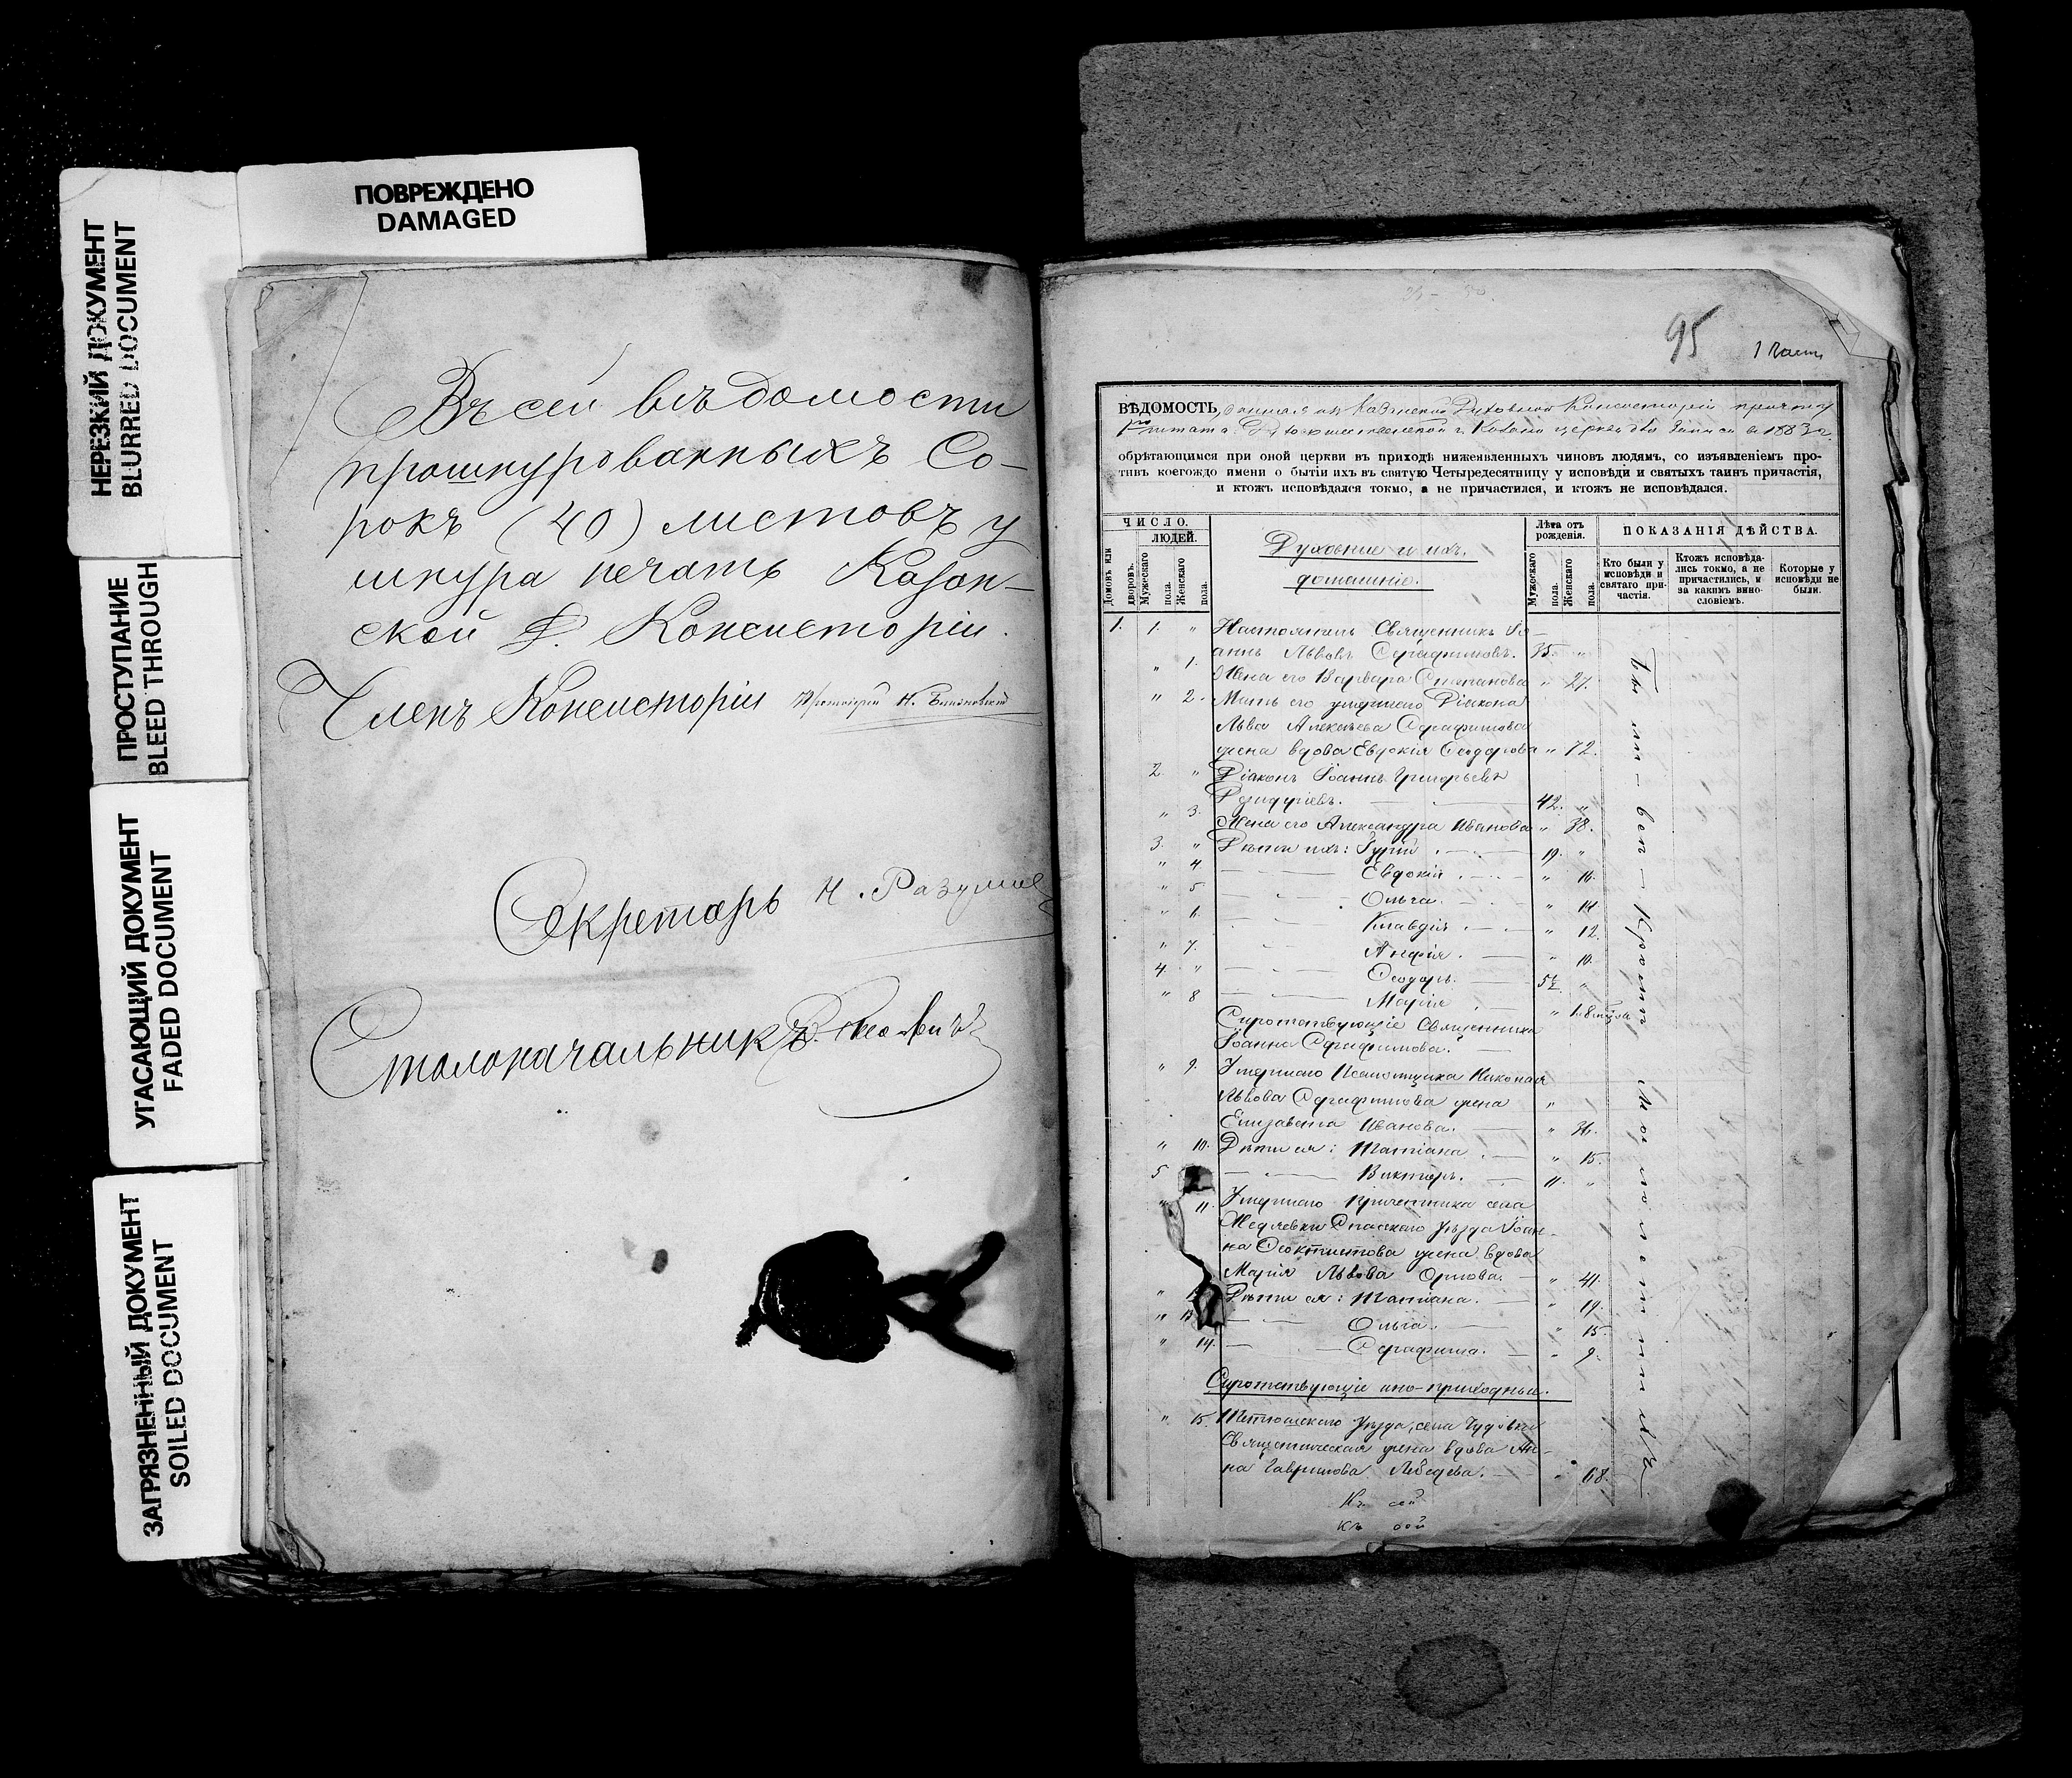 ПОВРЕЖДЕНО
DAMAGED
НЕРЕЗКИЙ ДОКУМЕНТ
BLURRED DOCUMENT
ПРОСТУПАНИЕ
BLEED THROUGH
УГАСАЮЩИЙ ДОКУМЕНТ
FADED DOCUMENT
ЗАГРЯЗНЕННЫЙ ДОКУМЕНТ
SOILED DOCUMENT
Въ сей вѣдомости
прошнурованныхъ Со-
рокъ (40) листовъ у
шнура печать Казан-
ской Д. Консисторіи.
Членъ Консисторіи Протоіерей
Секретарь Н. Разумов
Столоначальникъ
95
ВѢДОМОСТЬ, данная изъ Казанской Духовной Консисторіи причту
г. Казани церкви для записи въ 1883 г.
обрѣтающимся при оной церкви въ приходѣ нижеявленныхъ чиновъ людямъ, со изъявленіемъ про-
тивъ коегождо имени о бытіи ихъ въ святую Четыредесятницу у исповѣди и святыхъ таинъ причастія,
и ктожъ исповѣдался токмо, а не причастился, и ктожъ не исповѣдался.
ЧИСЛО.
ЛЮДЕЙ.
Домовъ или дворовъ.
Мужескаго пола.
Женскаго пола.
Духовные и ихъ
домашніе.
Лѣта отъ рожденія.
Мужескаго пола.
Женскаго пола.
ПОКАЗАНІЯ ДѢЙСТВА.
Кто были у исповѣди и святаго причастія.
Ктожъ исповѣдались токмо, а не причастились, и за какимъ винословіемъ.
Которые у исповѣди не были.
1. 1. " Настоятель Священникъ Іо-
аннъ Львовъ Серафимовъ. 35. "
" 1. Жена его Варвара Степанова " 27.
" 2. Мать его умершаго Діакона
Льва Алексѣева Серафимова
жена вдова Евдокія Ѳеодорова " 72.
2. " Діаконъ Іоаннъ Григорьевъ
42. "
" 3. Жена его Александра Иванова " 38.
3. " Дѣти ихъ: Гурій 19. "
" 4 Евдокія "
" 5 Ольга. " 14.
" 6. Клавдія " 12.
" 7. " 10.
4. " Ѳеодоръ. 5½ "
" 8 Марія "
Сиротствующіе Священника
Іоанна Серафимова.
" 9. Умершаго Псаломщика Николая
Львова Серафимова жена "
Елизавета Иванова. " 36.
" 10. Дѣти ея: Татіана " 15.
5 Викторъ. 11. "
" 11. Умершаго Причетника села
Спасскаго уѣзда Іоан-
на Ѳеоктистова жена вдова
Марія Львова Орлова. " 41.
" Дѣти ея: Татіана. " 19.
" 13 Ольга. " 15.
" 14. Серафима. " 9.
Сиротствующіе ино-приходные.
" 15. Тетюшскаго уѣзда, села
Священническая жена вдова Ан-
на Гаврилова Лебедева. " 68.
Къ сей